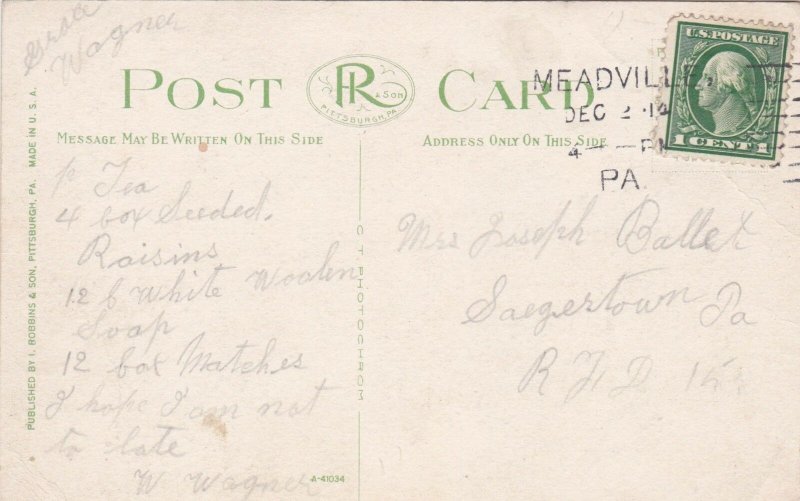 Wagner
POST CARD
R
& SON
PITTSBURGH, PA.
MESSAGE MAY BE WRITTEN ON THIS SIDE
ADDRESS ONLY ON THIS SIDE
U.S. POSTAGE
1 CENT 1
MEADVILLE,
DEC 2 14
4 — PM
PA.
PUBLISHED BY I. ROBBINS & SON, PITTSBURGH, PA. MADE IN U.S.A.
Tea
4 box Seeded.
Raisins
12 b White Woolen
Soap
12 box Matches
I hope I am not
to late
W Wagner
C T PHOTOCHROM
A-41034
Mrs Joseph Ballet
Saegertown Pa
R F D